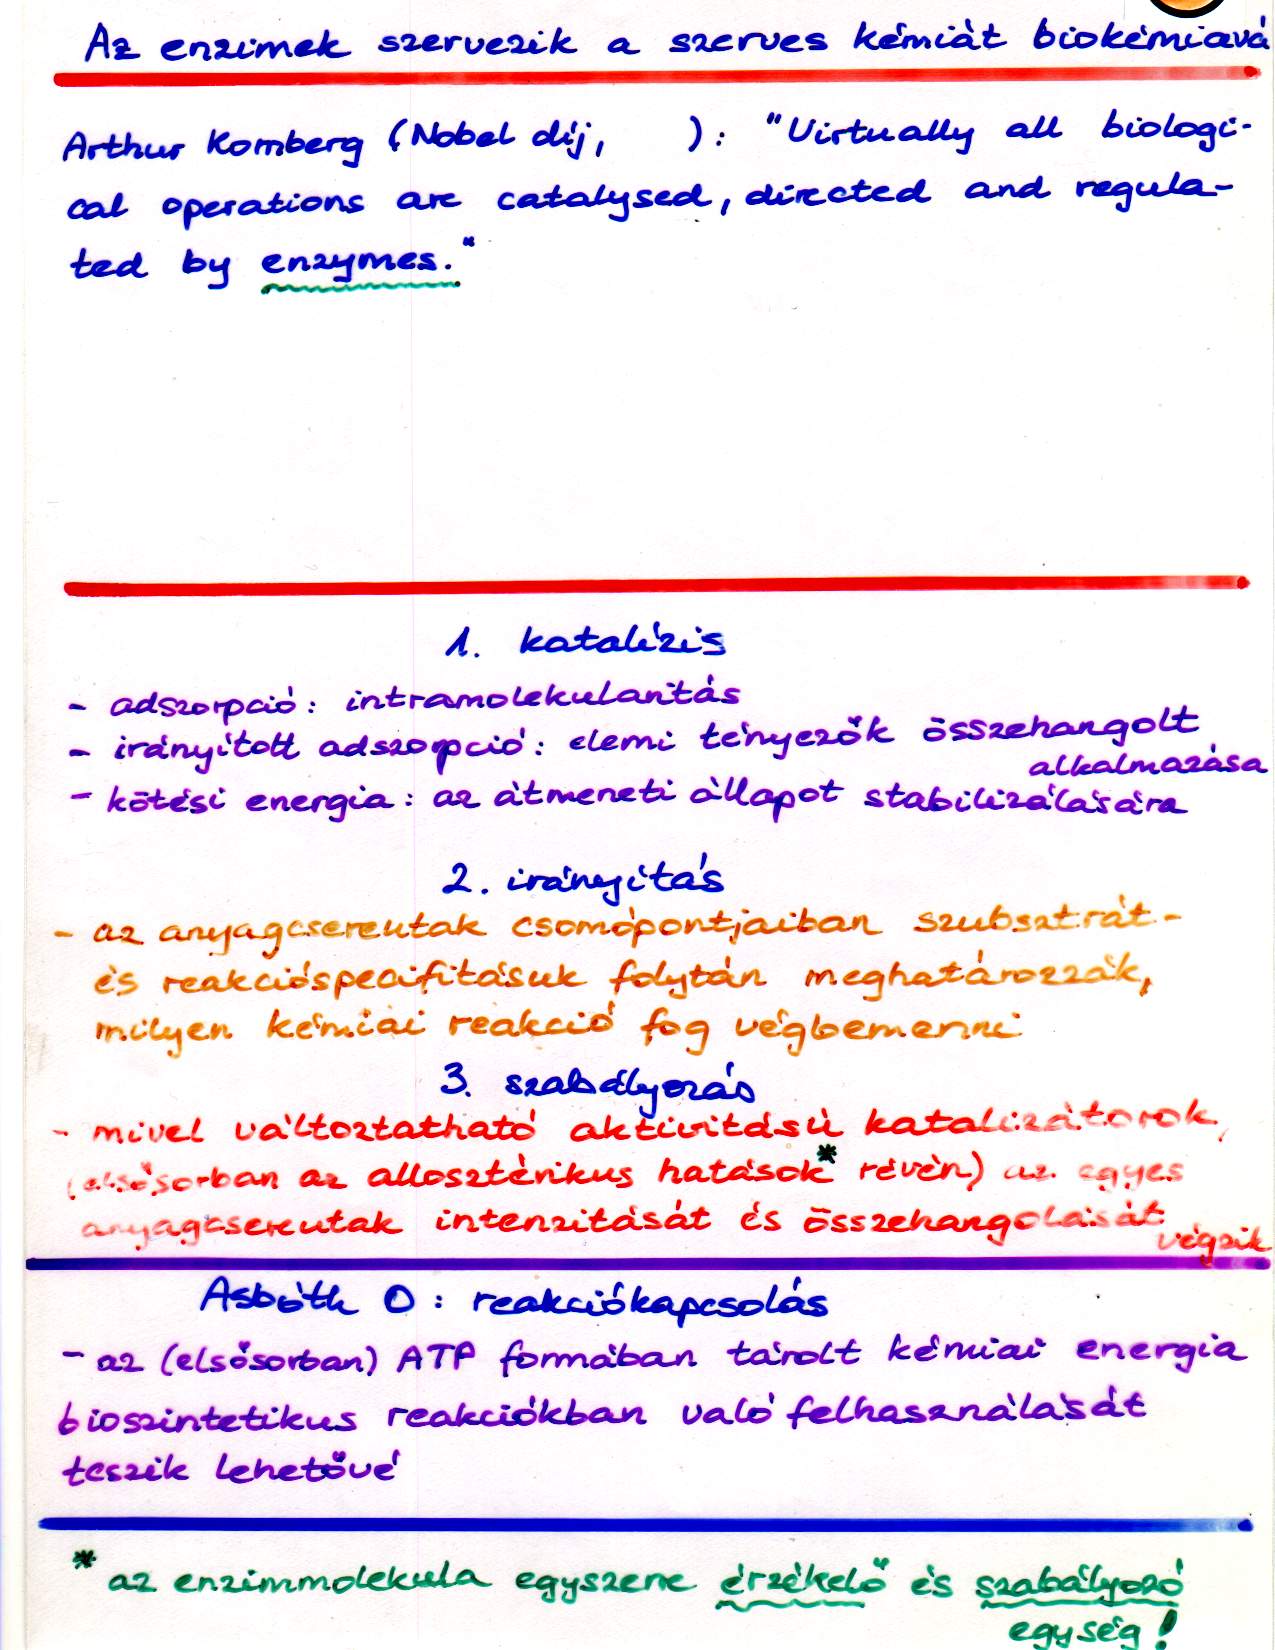 Az enzimek szervezik a szerves kémiát biokémiává
Arthur Kornberg (Nobel díj,     ): "Virtually all biologi-
cal operations are catalysed, directed and regula-
ted by enzymes."
1. katalízis
- adszorpció: intramolekularitás
- irányított adszorpció: elemi tényezők összehangolt
alkalmazása
- kötési energia: az átmeneti állapot stabilizálására
2. irányítás
- az anyagcsereutak csomópontjaiban szubsztrát-
és reakcióspecifitásuk folytán meghatározzák,
milyen kémiai reakció fog végbemenni
3. szabályozás
- mivel változtatható aktivitású katalizátorok,
(elsősorban az allosztérikus hatások* révén) az egyes
anyagcsereutak intenzitását és összehangolását
végzik
Asbóth O: reakciókapcsolás
- az (elsősorban) ATP formában tárolt kémiai energia
bioszintetikus reakciókban való felhasználását
teszik lehetővé
* az enzimmolekula egyszerre érzékelő" és szabályozó
egység!